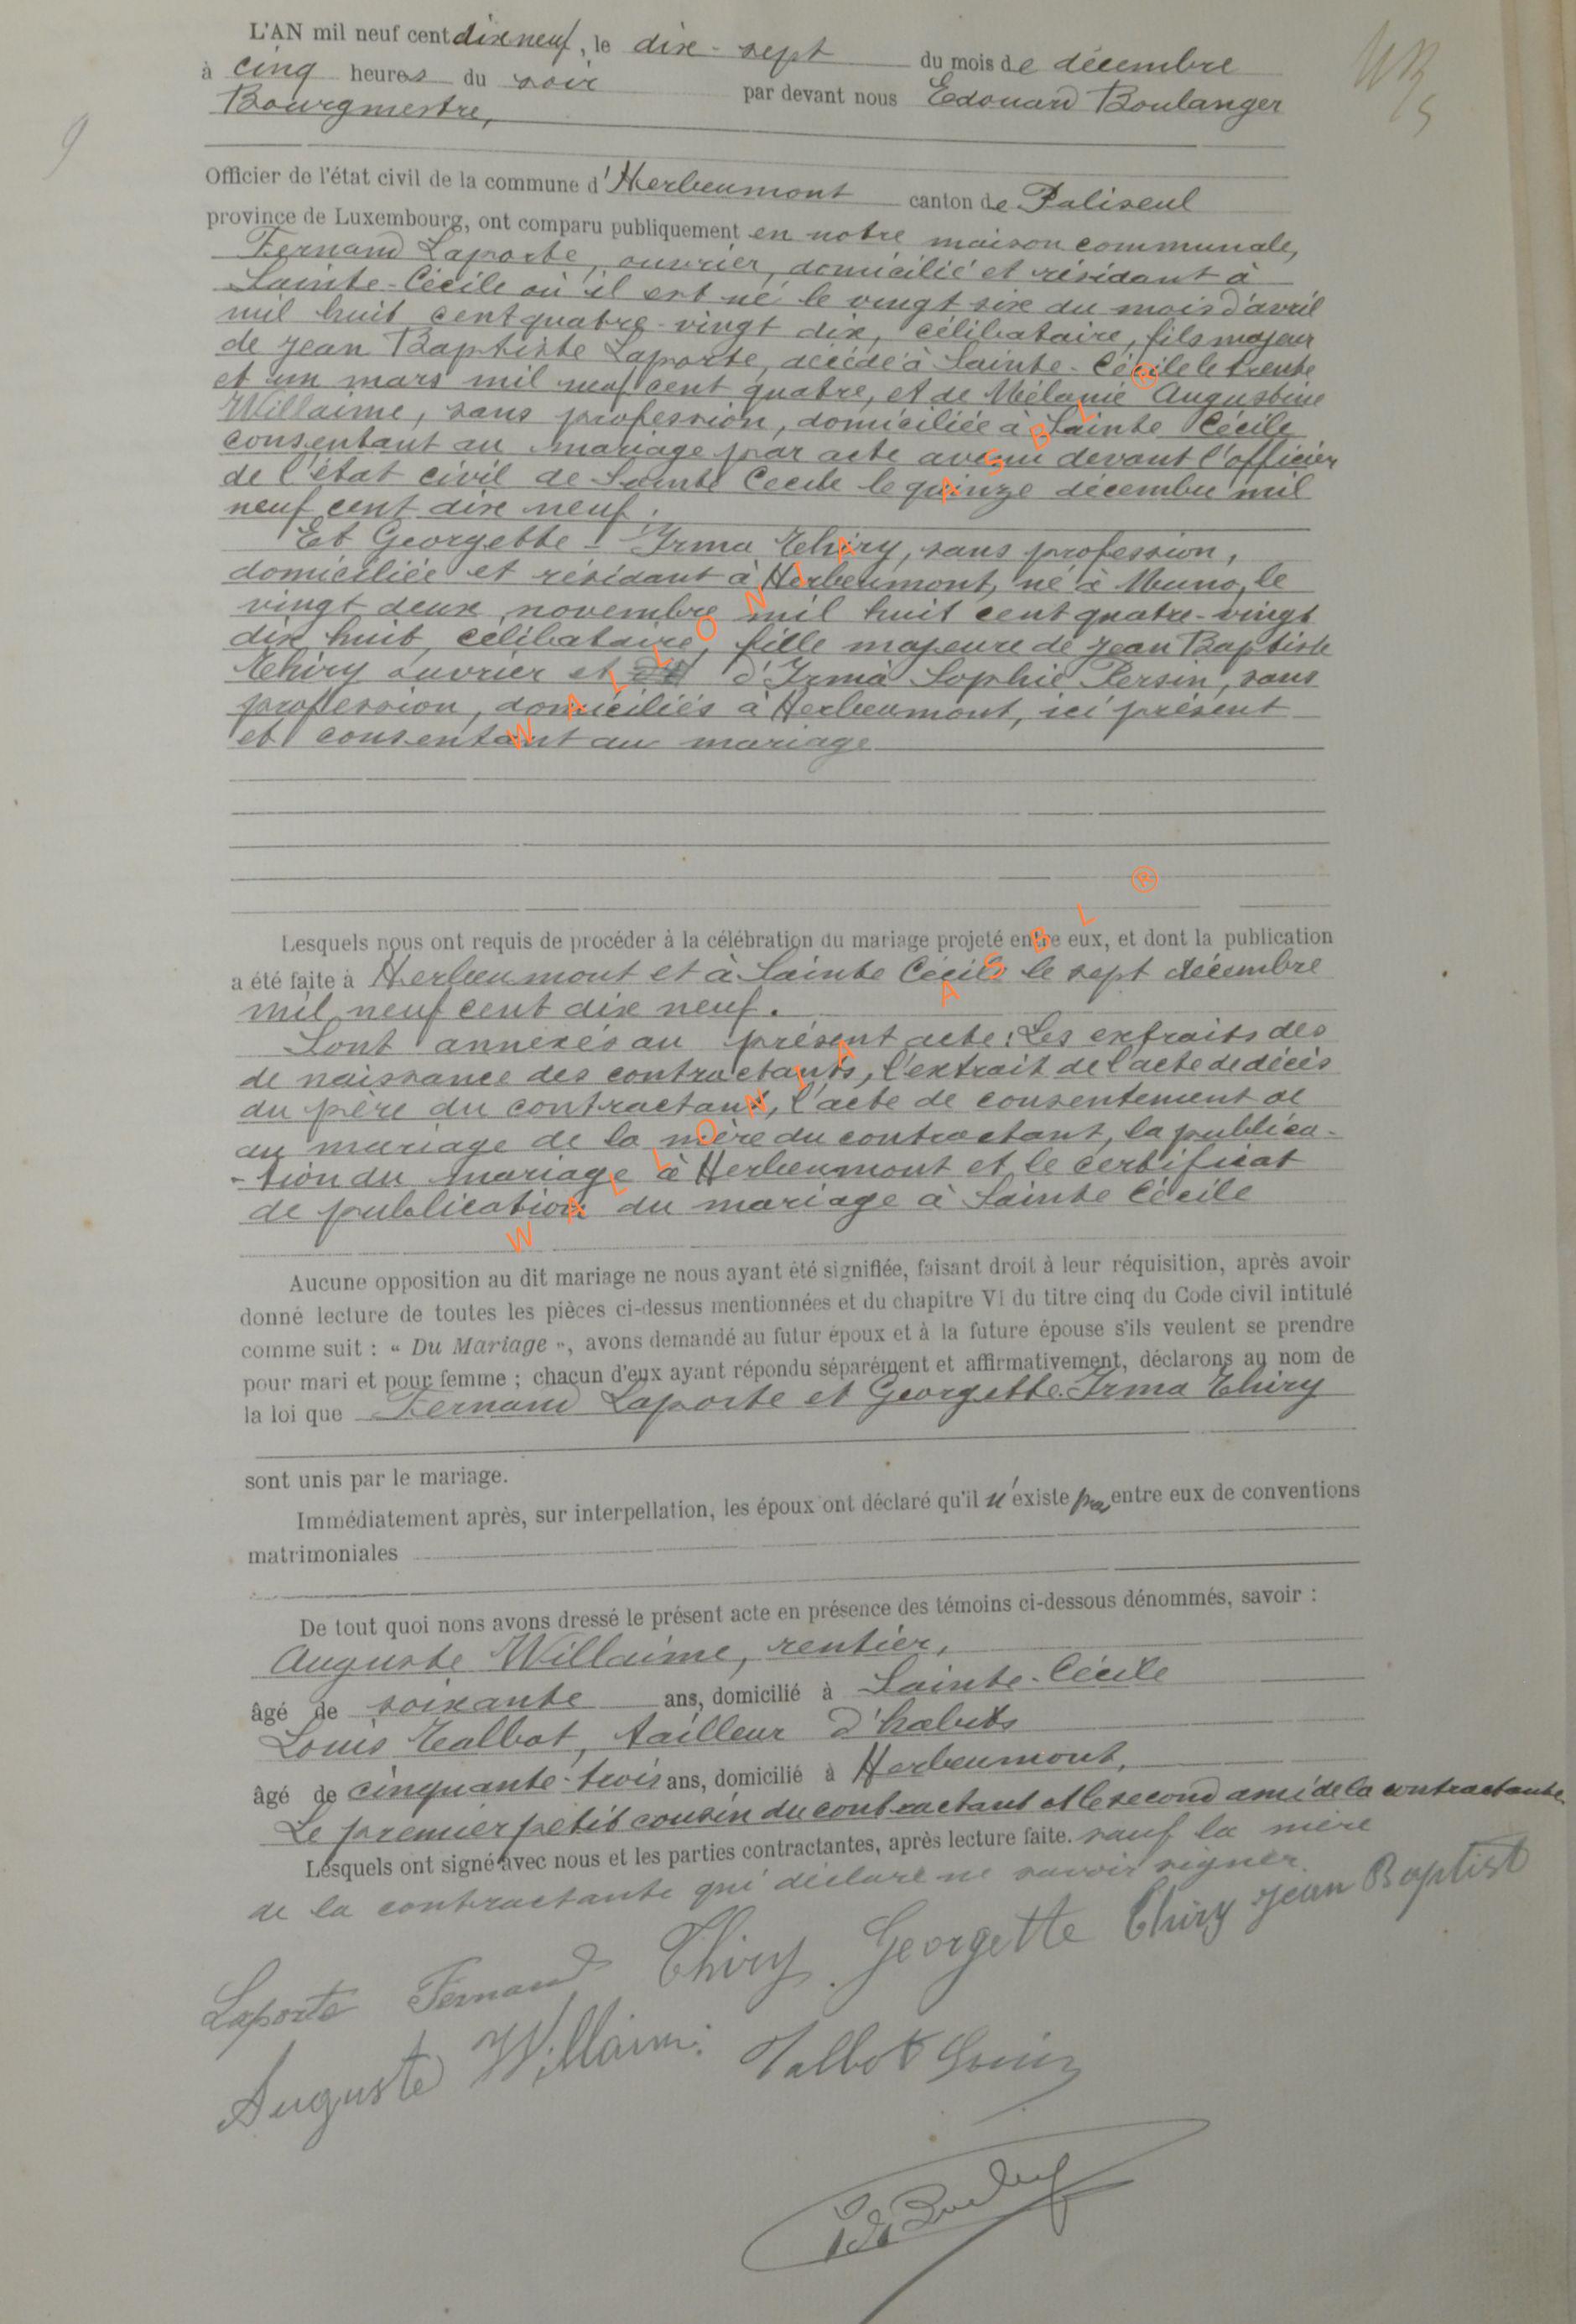 L'AN mil neuf cent dix neuf, le dix-sept du mois de décembre
à cinq heures du soir par devant nous Edouard Boulanger
Bourgmestre,
Officier de l'état civil de la commune d'Herbeumont canton de Paliseul
province de Luxembourg, ont comparu publiquement en notre maison communale,
Fernand Laporte, ouvrier, domicilié et résidant à
Sainte-Cécile où il est né le vingt six du mois d'avril
mil huit cent quatre-vingt dix, célibataire, fils majeur
de Jean Baptiste Laporte, décédé à Sainte-Cécile le trente
et un mars mil neuf cent quatre, et de Mélanie Augustine
Willaime, sans profession, domiciliée à Sainte Cécile
consentant au mariage par acte avenu devant l'officier
de l'état civil de Sainte Cecile le quinze décembre mil
neuf cent dix neuf.
Et Georgette-Irma Thiry, sans profession,
domiciliée et résidant à Herbeumont, né à Muno, le
vingt deux novembre mil huit cent quatre-vingt
dix huit, célibataire, fille majeure de Jean Baptiste
Thiry ouvrier et d'Irma Sophie Persin, sans
profession, domiciliés à Herbeumont, ici présent
et consentant au mariage
Lesquels nous ont requis de procéder à la célébration du mariage projeté entre eux, et dont la publication
a été faite à Herbeumont et à Sainte Cécile le sept décembre
mil neuf cent dix neuf.
Sont annexés au présent acte: Les extraits des
de naissance des contractants, l'extrait de l'acte de décès
du père du contractant, l'acte de consentement de
au mariage de la mère du contractant, la publica-
-tion du mariage à Herbeumont et le certificat
de publication du mariage à Sainte Cécile
WALLONIA ASBL ®
WALLONIA ASBL ®
Aucune opposition au dit mariage ne nous ayant été signifiée, faisant droit à leur réquisition, après avoir
donné lecture de toutes les pièces ci-dessus mentionnées et du chapitre VI du titre cinq du Code civil intitulé
comme suit : « Du Mariage », avons demandé au futur époux et à la future épouse s'ils veulent se prendre
pour mari et pour femme ; chacun d'eux ayant répondu séparément et affirmativement, déclarons au nom de
la loi que Fernand Laporte et Georgette-Irma Thiry
sont unis par le mariage.
Immédiatement après, sur interpellation, les époux ont déclaré qu'il n'existe pas entre eux de conventions
matrimoniales
De tout quoi nons avons dressé le présent acte en présence des témoins ci-dessous dénommés, savoir :
Auguste Willaime, rentier,
âgé de soixante ans, domicilié à Sainte-Cécile
Louis Talbot, tailleur d'habits
âgé de cinquante-trois ans, domicilié à Herbeumont,
Le premier petit cousin du contractant et le second ami de la contractante.
Lesquels ont signé avec nous et les parties contractantes, après lecture faite. sauf la mère
de la contractante qui déclare ne savoir signer.
Laporte Fernand Thiry Georgette Thiry Jean Baptist
Auguste Willaime Talbot Louis